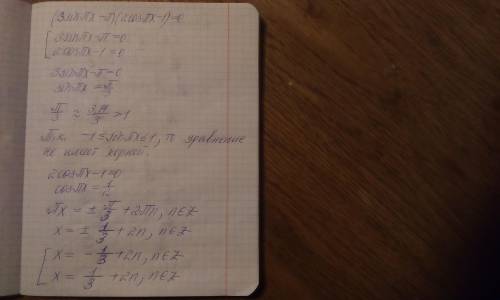 (3sinπx-π)(2cosπx-1)=0
[ 3sinπx-π=0
2cosπx-1=0
3sinπx-π=0
sinπx=π/3
π/3 ≈ 3,14/3 >1
т.к. -1≤sinπx≤1, то уравнение
не имеет корней.
2cosπx-1=0
cosπx=1/2
πx=±π/3+2πn, n∈Z
x=±1/3+2n, n∈Z
[ x=-1/3+2n, n∈Z
x=1/3+2n, n∈Z